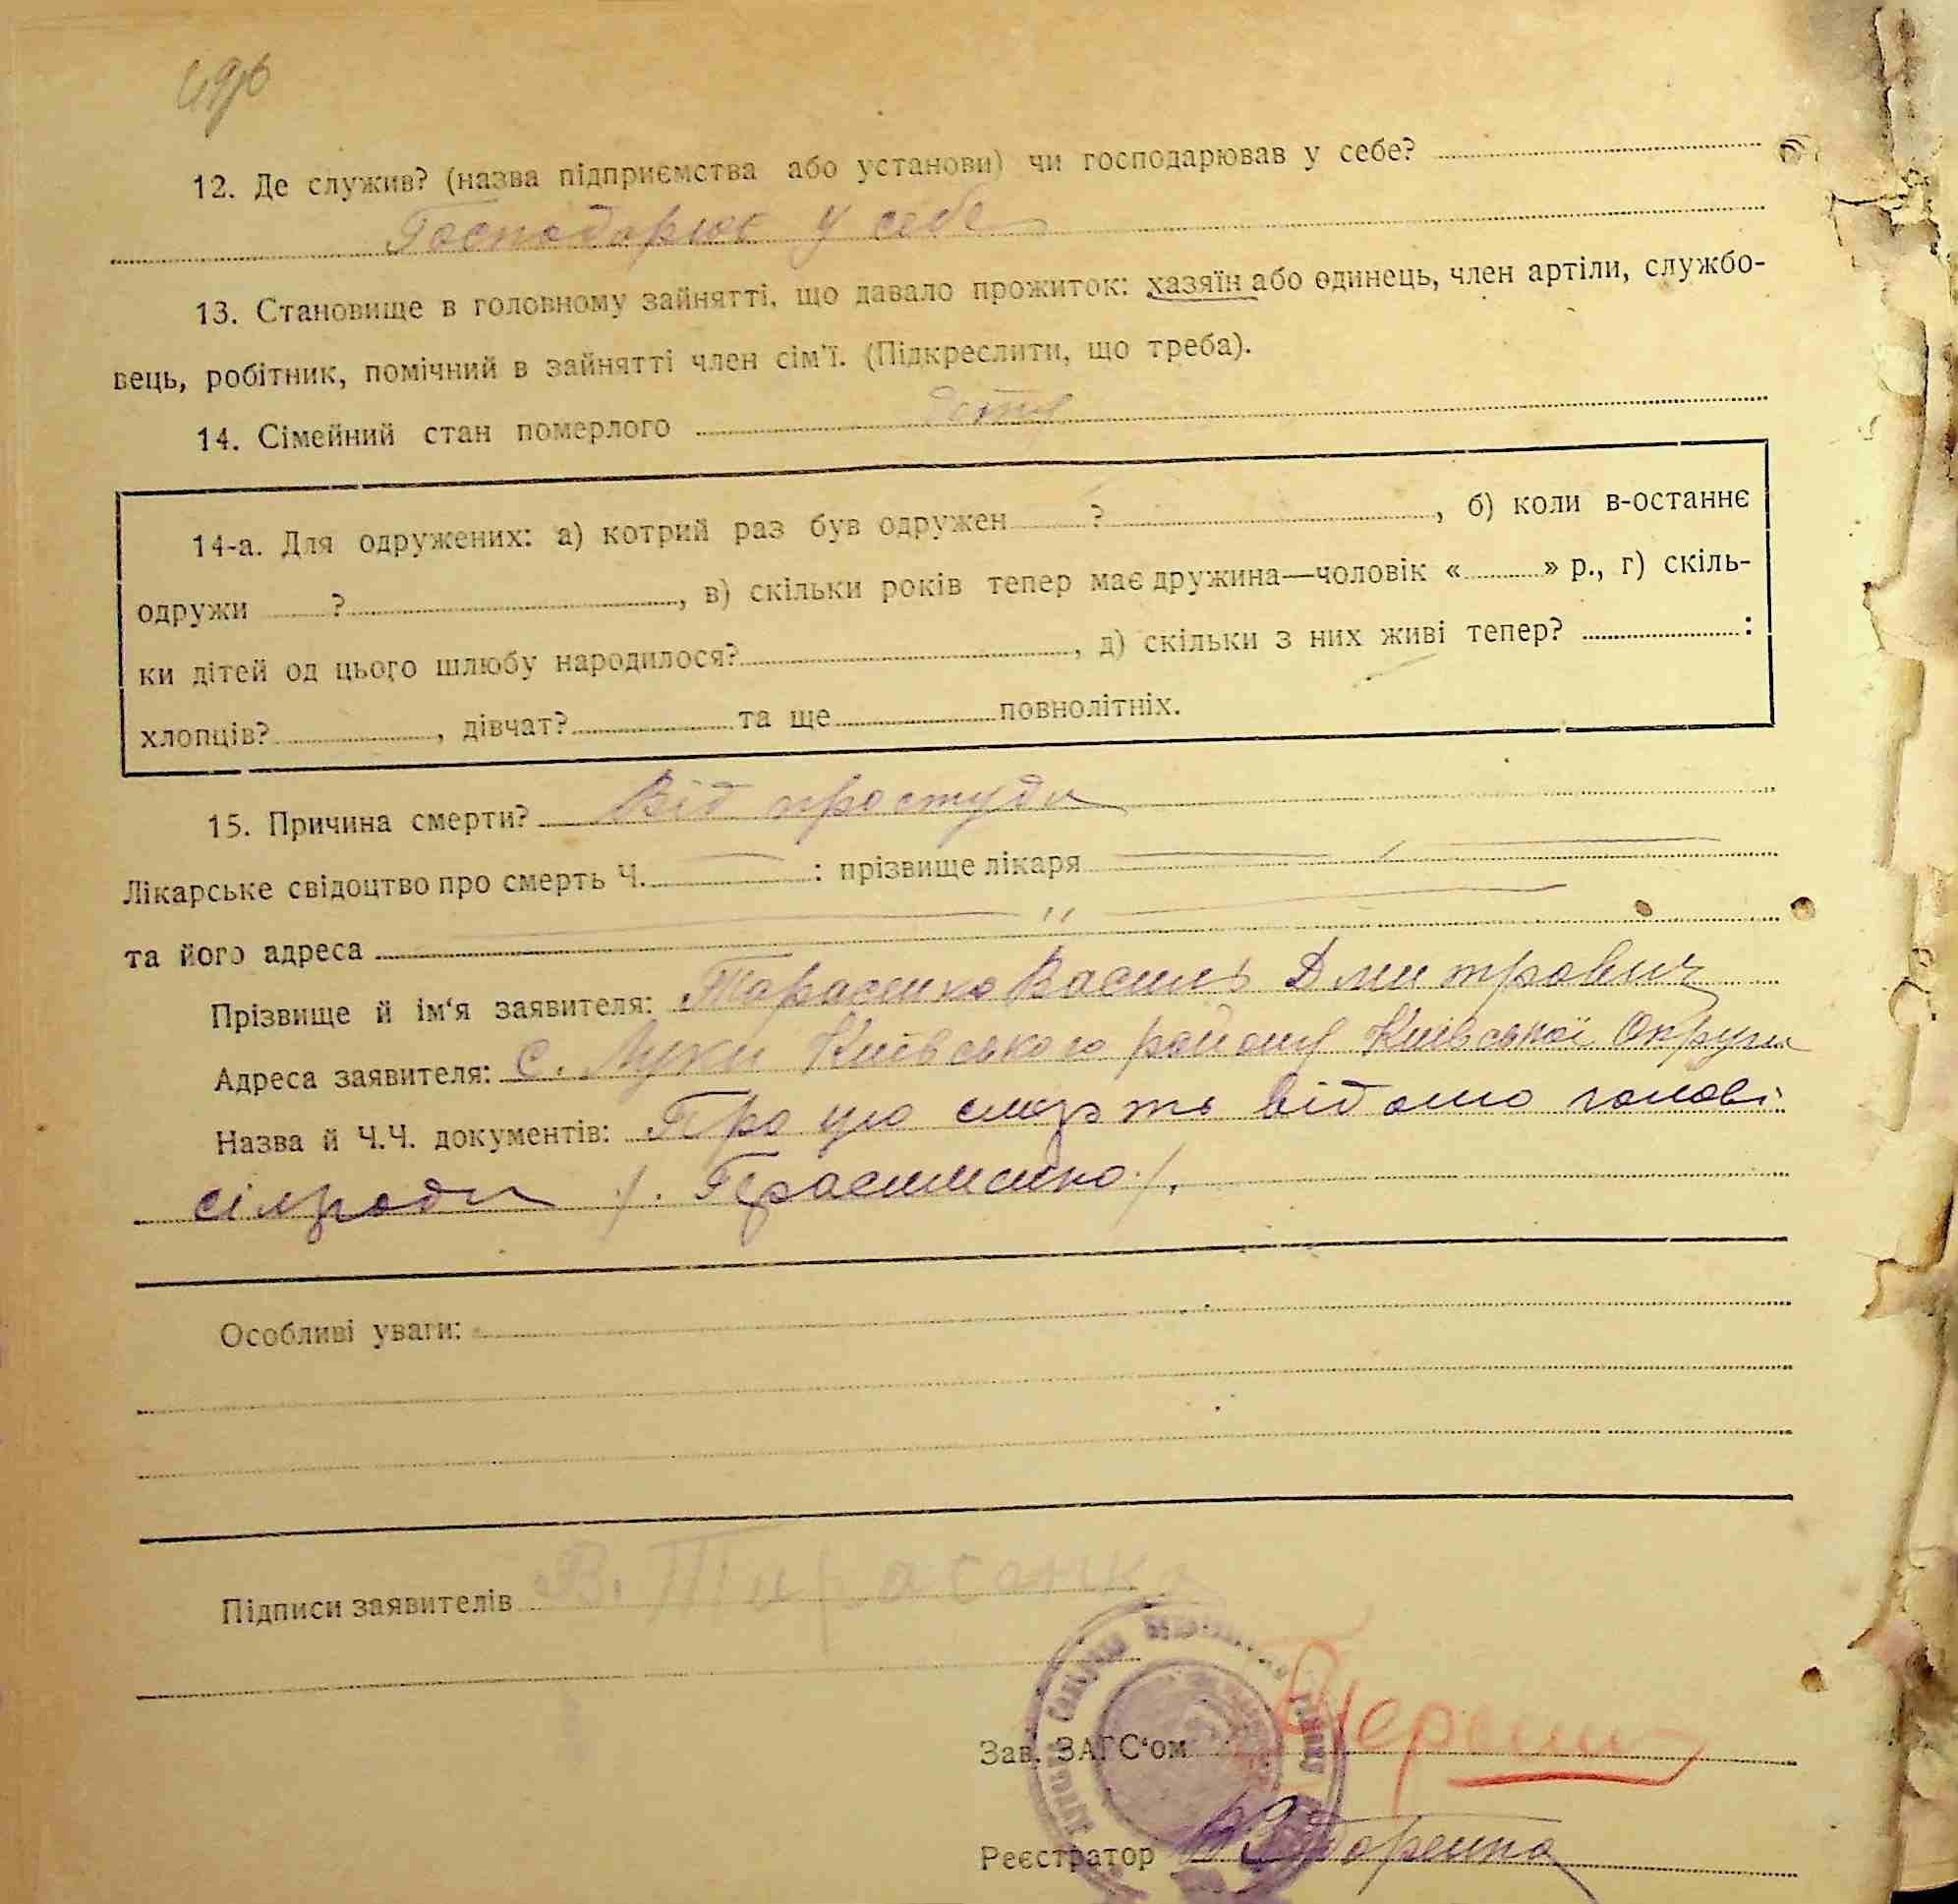 49б
12. Де служив? (назва підприємства або установи) чи господарював у себе?
Господорює у себе
13. Становище в головному зайнятті, що давало прожиток: хазяїн або одинець, член артіли, службо-
вець, робітник, помічний в зайнятті член сім'ї. (Підкреслити, що треба).
14. Сімейний стан померлого
14-а. Для одружених: а) котрий раз був одружен ? , б) коли в-останнє
одружи ? , в) скільки років тепер має дружина—чоловік « » р., г) скіль-
ки дітей од цього шлюбу народилося? , д) скільки з них живі тепер? :
хлопців? , дівчат? та ще повнолітніх.
15. Причина смерти? Від простуди
Лікарське свідоцтво про смерть Ч. : прізвище лікаря
та його адреса "
Прізвище й ім'я заявителя: Тарасенко Василь Дмитрович
Адреса заявителя: с. Луки Київського району Київської Округи
Назва й Ч.Ч. документів: Про цю смерть відомо голові
сілради /. Герасименко /.
Особливі уваги:
Підписи заявителів В. Тарасенко
Зав. ЗАГС'ом
Реєстратор